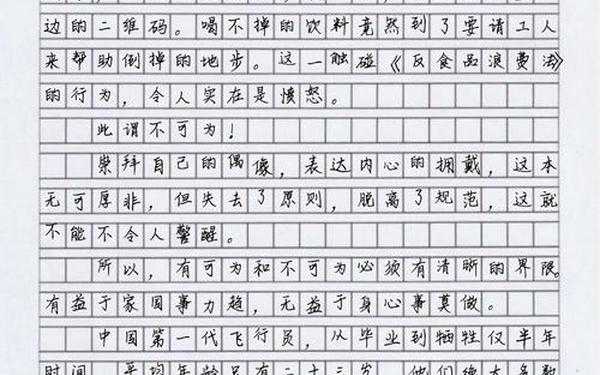 边的二维码。喝不掉的饮料竟然到了要请工人
来帮助倒掉的地步。这一触碰《反食品浪费法》
的行为，令人实在是愤怒。
此谓不可为！
崇拜自己的偶像，表达内心的拥戴，这本
无可厚非，但失去了原则，脱离了规范，这就
不能不令人警醒。
所以，有可为和不可为必须有清晰的界限。
有益于家国事力趋，无益于身心事莫做。
中国第一代飞行员，从毕业到牺牲仅半年
时间，平均年龄只有二十三岁。他们绝大多数